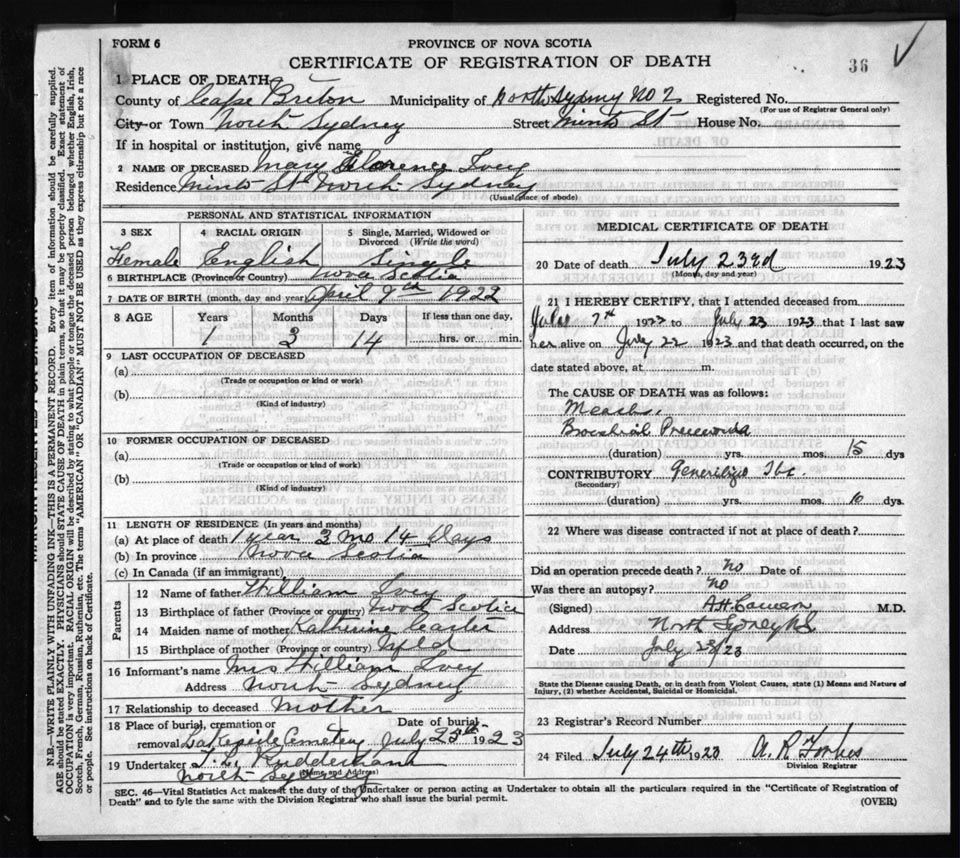 FORM 6
PROVINCE OF NOVA SCOTIA
CERTIFICATE OF REGISTRATION OF DEATH
36
1 PLACE OF DEATH
County of Cape Breton Municipality of North Sydney No 2 Registered No.
(For use of Registrar General only)
City or Town North Sydney Street Minto St House No.
If in hospital or institution, give name
2 NAME OF DECEASED Mary Florence Ivey
Residence Minto St North Sydney
(Usual place of abode)
PERSONAL AND STATISTICAL INFORMATION
3 SEX 4 RACIAL ORIGIN 5 Single, Married, Widowed or Divorced (Write the word)
Female English Single
6 BIRTHPLACE (Province or Country) Nova Scotia
7 DATE OF BIRTH (month, day and year) April 9th 1922
8 AGE Years Months Days If less than one day,
1 3 14 hrs. or min.
9 LAST OCCUPATION OF DECEASED
(a)
(Trade or occupation or kind or work)
(b)
(Kind of industry)
10 FORMER OCCUPATION OF DECEASED
(a)
(Trade or occupation or kind of work)
(b)
(Kind of industry)
11 LENGTH OF RESIDENCE (In years and months)
(a) At place of death 1 year 3 mo 14 Days
(b) In province Nova Scotia
(c) In Canada (if an immigrant)
Parents
12 Name of father William Ivey
13 Birthplace of father (Province or country) Nova Scotia
14 Maiden name of mother Katherine Carter
15 Birthplace of mother (Province or country) Nfld
16 Informant's name Mrs William Ivey
Address North Sydney
17 Relationship to deceased Mother
18 Place of burial, cremation or Date of burial
removal Lakeside Cemetery July 25th 1923
19 Undertaker
North Sydney
(Name and Address)
MEDICAL CERTIFICATE OF DEATH
20 Date of death July 23rd 1923
(Month, day and year)
21 I HEREBY CERTIFY, that I attended deceased from
July 7th 1923 to July 23 1923 that I last saw
her alive on July 22 1923 and that death occurred, on the
date stated above, at m.
The CAUSE OF DEATH was as follows:
Measles.
Bronchial Pneumonia
(duration) yrs. mos. 15 dys
CONTRIBUTORY Tbc.
(Secondary)
(duration) yrs. mos. 10 dys.
22 Where was disease contracted if not at place of death?
Did an operation precede death? No Date of
Was there an autopsy? No
(Signed) M.D.
Address North Sydney NS
Date July /23
State the Disease causing Death, or in death from Violent Causes, state (1) Means and Nature of
Injury, (2) whether Accidental, Suicidal or Homicidal.
23 Registrar's Record Number
24 Filed July 24th 1923 A. R. Forbes
Division Registrar
SEC. 46—Vital Statistics Act makes it the duty of the Undertaker or person acting as Undertaker to obtain all the particulars required in the "Certificate of Registration of
Death" and to fyle the same with the Division Registrar who shall issue the burial permit.
(OVER)
N.B.—WRITE PLAINLY WITH UNFADING INK—THIS IS A PERMANENT RECORD. Every item of information should be carefully supplied.
AGE should be stated EXACTLY. PHYSICIANS should STATE CAUSE OF DEATH in plain terms, so that it may be properly classified. Exact statement of
OCCUPATION is very important. RACIAL ORIGIN will be described by stating to what people or tongue the deceased person belonged whether English, Irish,
Scotch, French, German, Russian, Ruthenian, etc. The terms "AMERICAN" OR "CANADIAN" MUST NOT BE USED as they express citizenship but not a race
or people. See instructions on back of Certificate.